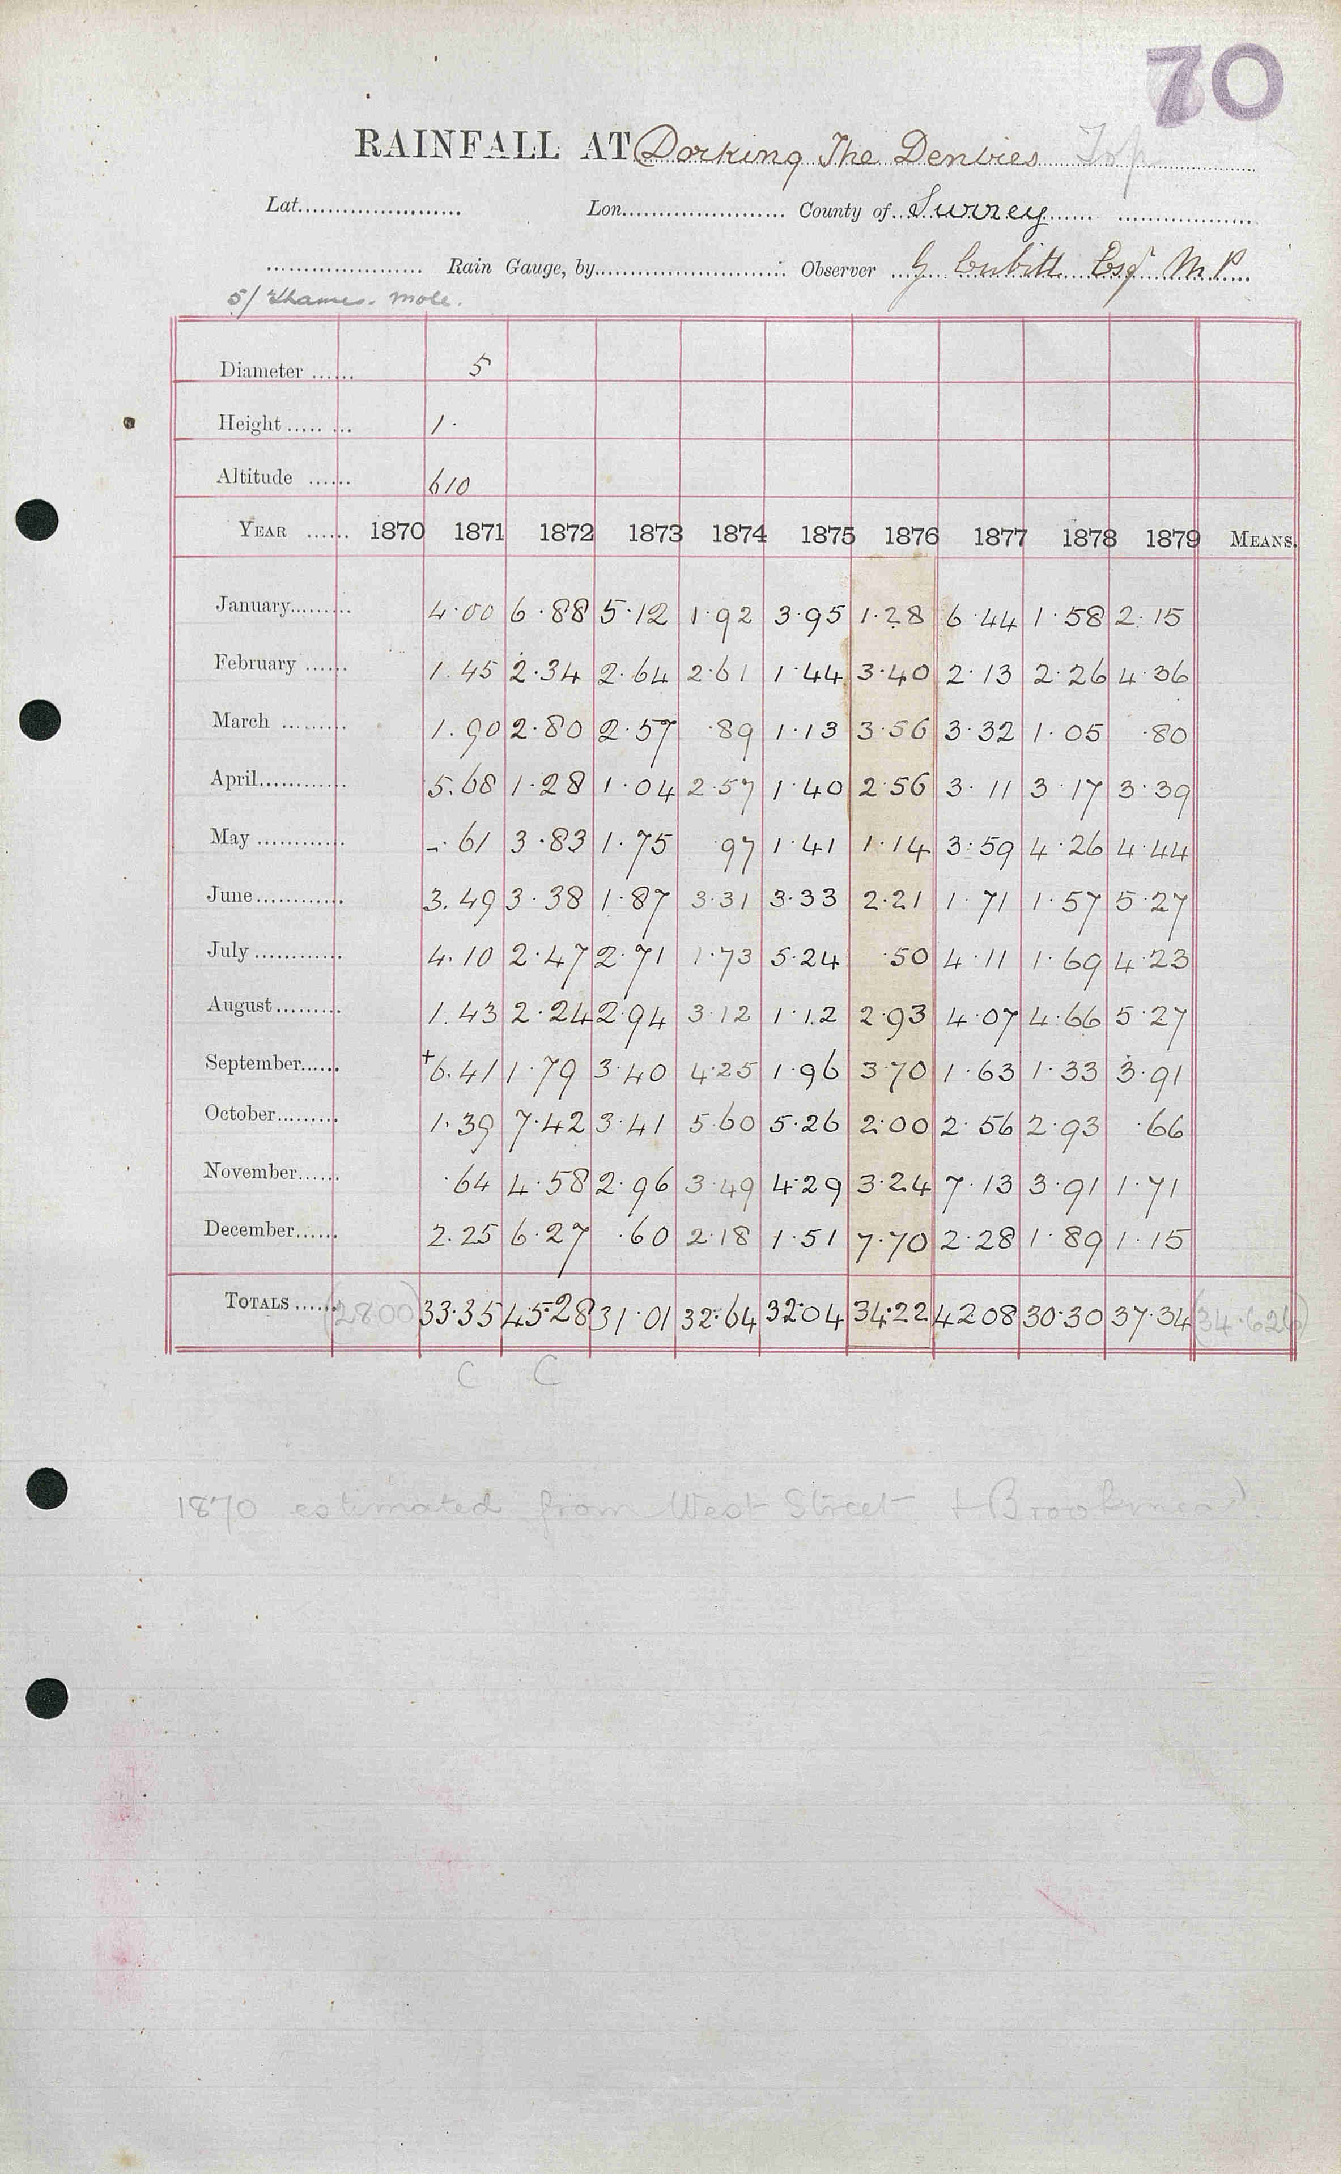 70
RAINFALL AT Dorking The Denbies Top
Lat...................... Lon...................... County of Surrey
Rain Gauge, by.......................... Observer G Cubitt Esqr M.P.
5/ Thames. Mole.
Diameter ...... 5
Height ........ 1·
Altitude ...... 610
YEAR ...... 1870 1871 1872 1873 1874 1875 1876 1877 1878 1879 MEANS.
January......... 4·00 6·88 5·12 1·92 3·95 1·28 6·44 1·58 2·15
February ...... 1.45 2·34 2·64 2·61 1·44 3·40 2·13 2·26 4·36
March ......... 1.90 2·80 2·57 ·89 1·13 3·56 3·32 1·05 ·80
April............ 5.68 1·28 1·04 2·57 1·40 2·56 3·11 3·17 3·39
May ............ -·61 3·83 1·75 ·97 1·41 1·14 3·59 4·26 4·44
June............ 3.49 3·38 1·87 3·31 3·33 2·21 1·71 1·57 5·27
July ............ 4.10 2·47 2·71 1·73 5·24 ·50 4·11 1·69 4·23
August......... 1.43 2·24 2·94 3·12 1·12 2·93 4·07 4·66 5·27
September...... +6.41 1·79 3·40 4·25 1·96 3·70 1·63 1·33 3·91
October......... 1·39 7·42 3·41 5·60 5·26 2·00 2·56 2·93 ·66
November...... ·64 4·58 2·96 3·49 4·29 3·24 7·13 3·91 1·71
December...... 2.25 6·27 ·60 2·18 1·51 7·70 2·28 1·89 1·15
TOTALS ...... (28.00) 33·35 45·28 31·01 32·64 32·04 34·22 42·08 30·30 37·34 (34·626)
C C
1870 estimated from West Street + Brookmead.